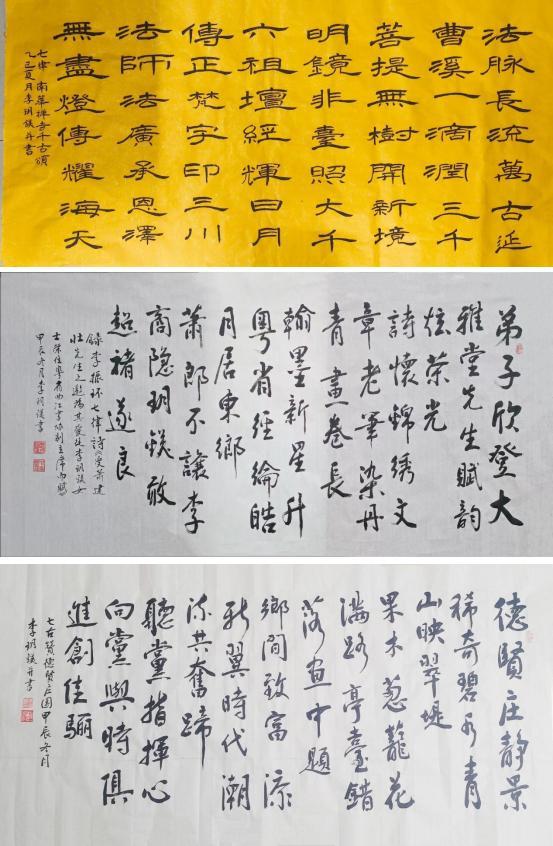 法脈長流萬古延
曹溪一滴潤三千
菩提無樹開新境
明鏡非臺照大千
六祖壇經輝日月
傳正梵字印三川
法師法廣承恩澤
無盡燈傳耀海天
七律南華禅寺千古頌
乙巳夏月李玥鎂并書
弟子欣登大
雅堂先生賦韵
炫榮光
詩懷錦綉文
章老筆染丹
青畫卷長
翰墨新星升
粤省經綸皓
月居東鄉
蕭郎不讓李
商隐玥鎂敢
超褚遂良
錄李振环七律詩受萧建
壯先生之邀為其愛徒李玥鎂女
士榮任粤省曲江書協副主席而賦
甲辰冬月李玥鎂書
德賢庄靜景
稀奇碧水青
山映翠堤
果木葱蘢花
滿路亭臺錯
落画中題
鄉間致富添
新翼時代潮
流共奮蹄
聽黨指揮心
向黨與時俱
進創佳驪
七古贊德賢庄園甲辰冬月
李玥鎂并書